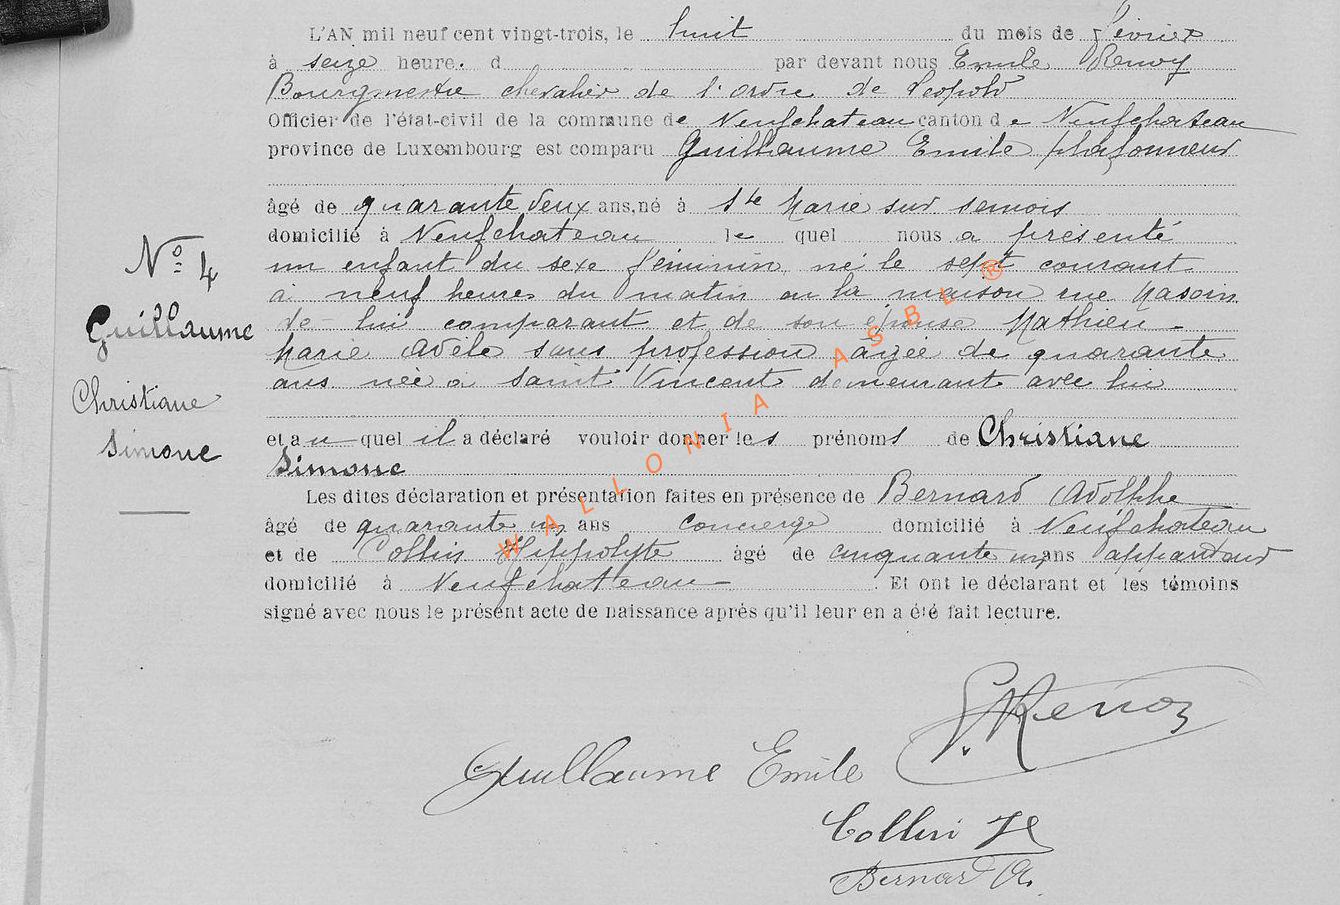 L'AN mil neuf cent vingt-trois, le huit du mois de février
à seize heure. d par devant nous Emile Renoy
Bourgmestre chevalier de l'ordre de Leopold
Officier de l'état-civil de la commune de Neufchateau canton de Neufchateau
province de Luxembourg est comparu Guillaume Emile plafonneur
âgé de quarante deux ans, né à Ste Marie sur semois
domicilié à Neufchateau le quel nous a présenté
un enfant du sexe féminin, né le sept courant
à neuf heures du matin en la maison rue
de lui comparant et de son épouse Mathieu
Marie Adèle sans profession âgée de quarante
ans née à Saint Vincent demeurant avec lui
et au quel il a déclaré vouloir donner les prénoms de Christiane
Simone
Les dites déclaration et présentation faites en présence de Bernard Adolphe
âgé de quarante un ans concierge domicilié à Neufchateau
et de Collin Hippolyte âgé de cinquante un ans
domicilié à Neufchateau. Et ont le déclarant et les témoins
signé avec nous le présent acte de naissance après qu'il leur en a été fait lecture.
No 4
Guillaume
Christiane
Simone
WALLONIA ASBL ®
E. Renoy
Guillaume Emile
Collin H
Bernard A.